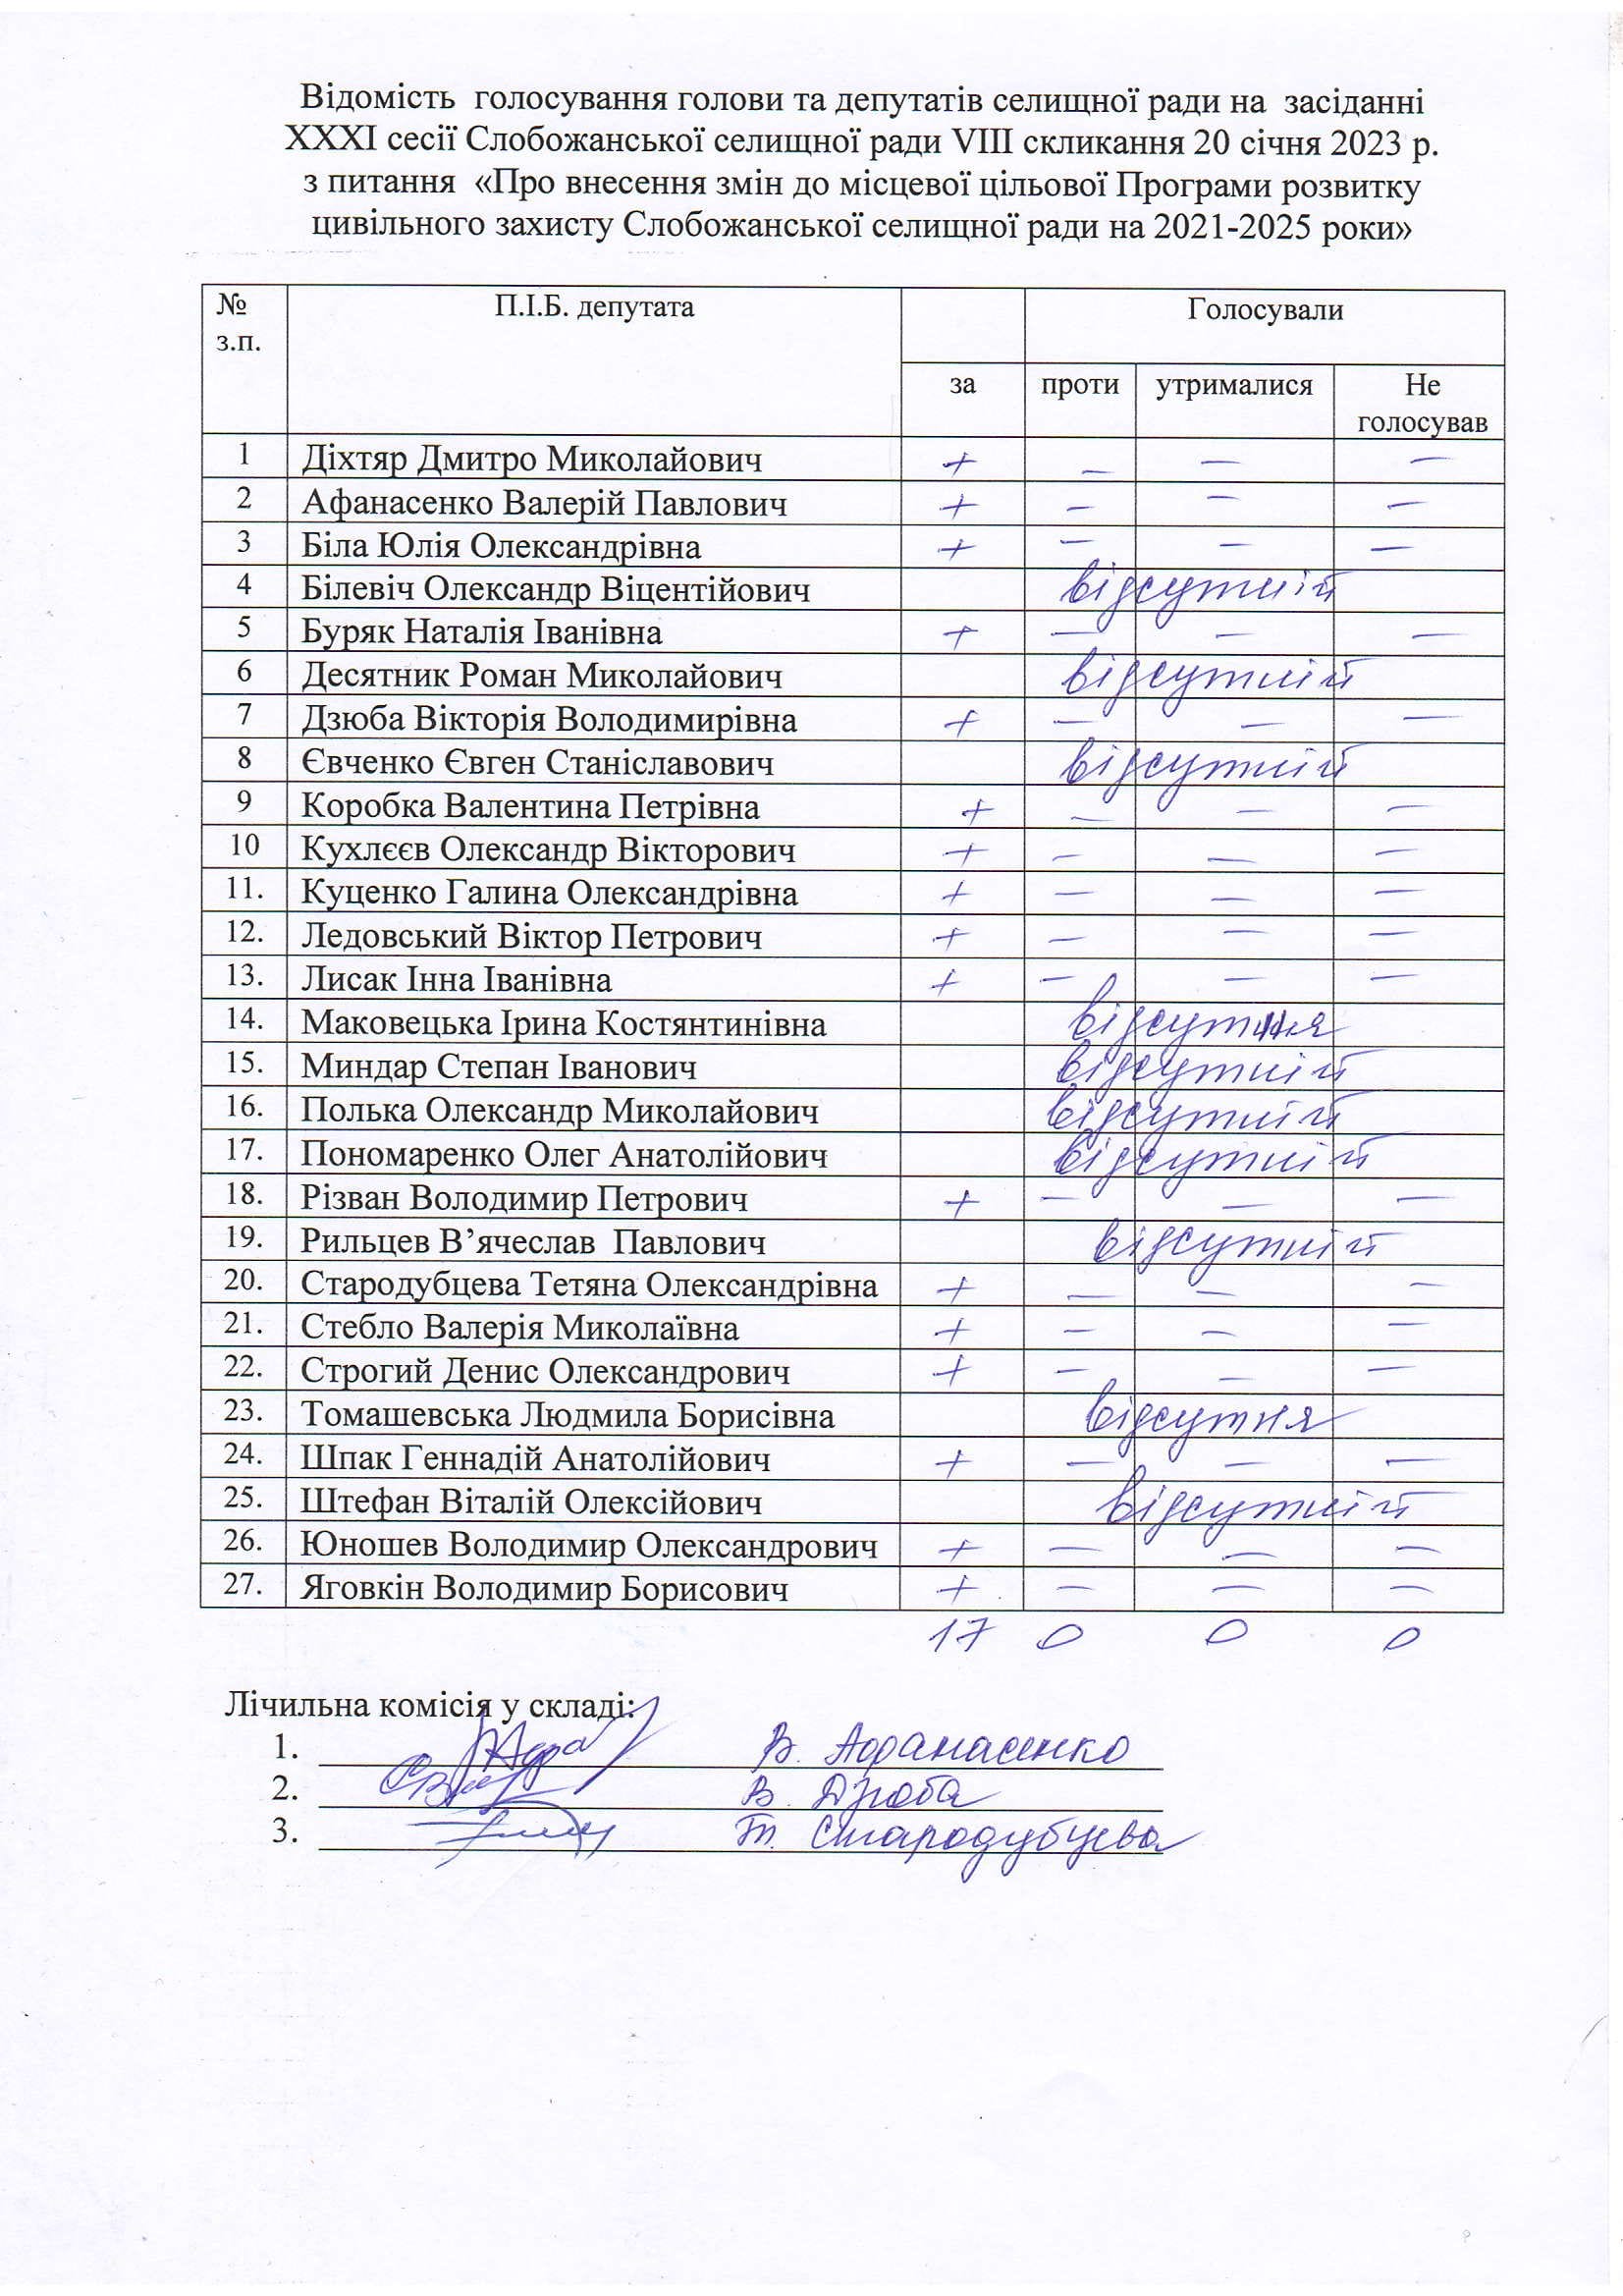 Відомість голосування голови та депутатів селищної ради на засіданні
XXXI сесії Слобожанської селищної ради VIII скликання 20 січня 2023 р.
з питання «Про внесення змін до місцевої цільової Програми розвитку
цивільного захисту Слобожанської селищної ради на 2021-2025 роки»
№ з.п. П.І.Б. депутата Голосували
за проти утрималися Не голосував
1 Діхтяр Дмитро Миколайович + – – –
2 Афанасенко Валерій Павлович + – – –
3 Біла Юлія Олександрівна + – – –
4 Білевіч Олександр Віцентійович відсутній
5 Буряк Наталія Іванівна + – – –
6 Десятник Роман Миколайович відсутній
7 Дзюба Вікторія Володимирівна + – – –
8 Євченко Євген Станіславович відсутній
9 Коробка Валентина Петрівна + – – –
10 Кухлєєв Олександр Вікторович + – – –
11. Куценко Галина Олександрівна + – – –
12. Ледовський Віктор Петрович + – – –
13. Лисак Інна Іванівна + – – –
14. Маковецька Ірина Костянтинівна відсутня
15. Миндар Степан Іванович відсутній
16. Полька Олександр Миколайович відсутній
17. Пономаренко Олег Анатолійович відсутній
18. Різван Володимир Петрович + – – –
19. Рильцев В’ячеслав Павлович відсутній
20. Стародубцева Тетяна Олександрівна + – – –
21. Стебло Валерія Миколаївна + – – –
22. Строгий Денис Олександрович + – – –
23. Томашевська Людмила Борисівна відсутня
24. Шпак Геннадій Анатолійович + – – –
25. Штефан Віталій Олексійович відсутній
26. Юношев Володимир Олександрович + – – –
27. Яговкін Володимир Борисович + – – –
17 0 0 0
Лічильна комісія у складі:
1. В. Афанасенко
2. В. Дзюба
3. Т. Стародубцева